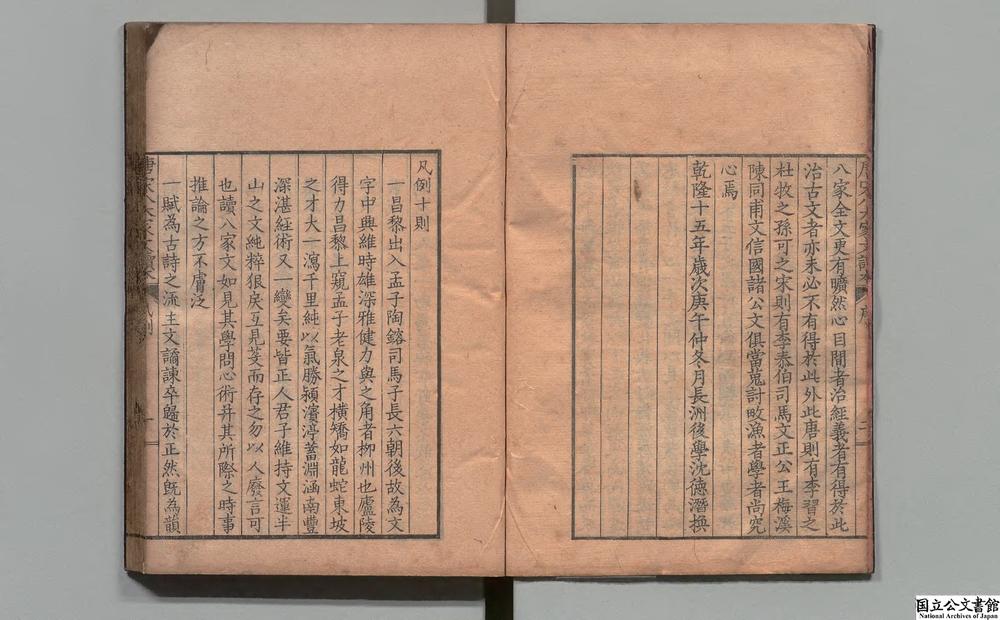 八家全文更有曠然心目間者治經義者有得於此
治古文者亦未必不有得於此外此唐則有李習之
杜牧之孫可之宋則有李泰伯司馬文正公王梅溪
陳同甫文信國諸公文俱當蒐討畋漁者學者尚究
心焉
乾隆十五年歲次庚午仲冬月長洲後學沈德潛撰
凡例十則
一昌黎出入孟子陶鎔司馬子長六朝後故為文
字中興維時雄深雅健力與之角者柳州也廬陵
得力昌黎上窺孟子老泉之才橫矯如龍蛇東坡
之才大一瀉千里純以氣勝潁濱渟蓄淵涵南豐
深湛經術又一變矣要皆正人君子維持文運半
山之文純粹狠戾互見芟而存之勿以人廢言可
也讀八家文如見其學問心術并其所際之時事
推論之方不膚泛
一賦為古詩之流主文譎諫卒歸於正然既為韻
唐宋八大家文讀本
凡例
一
序
二
国立公文書館
National Archives of Japan